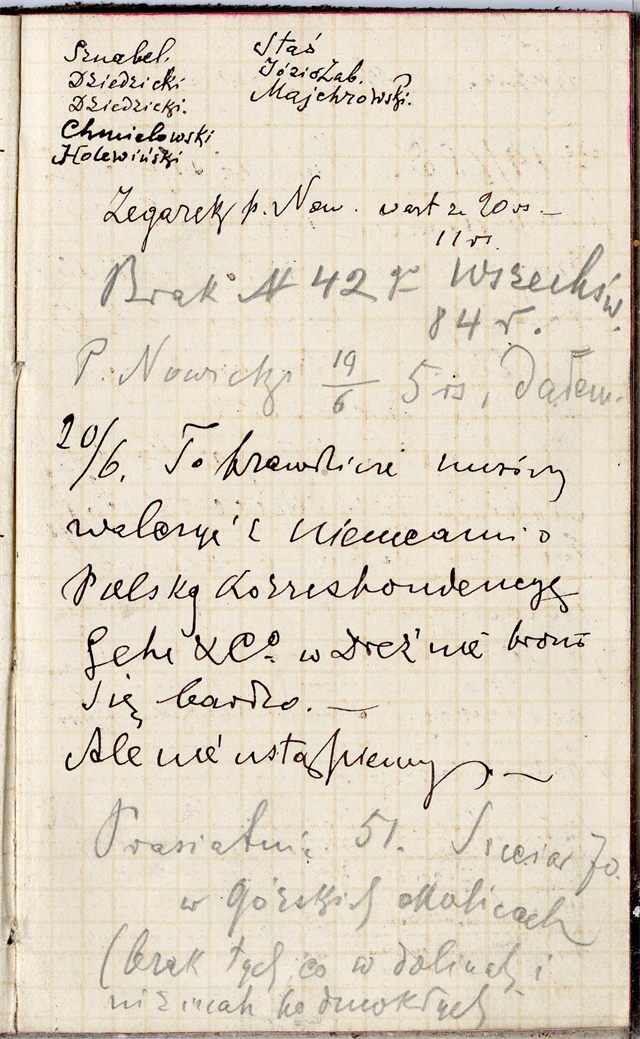 Sznabel.
Dziedzicki
Dziedzicki.
Chmielowski
Holewiński
Staś
Józio Zab.
Majchrowski.
Zegarek p. Now. wart za 20 rs. —
11 rs.
Brak N 42 Wszechśw.
84 r.
P. Nowicki 19/6 5 rs, dałem.
20/6. To prawdziwie musimy
walczyć z Niemcami o
Polską Korrespondencyę
Gehe & Co. w Dreźnie broni
się bardzo. —
Ale nie ustąpiemy. —
51. 70.
w górskich okolicach
(brak tych co w dolinach i
nizinach podmokłych